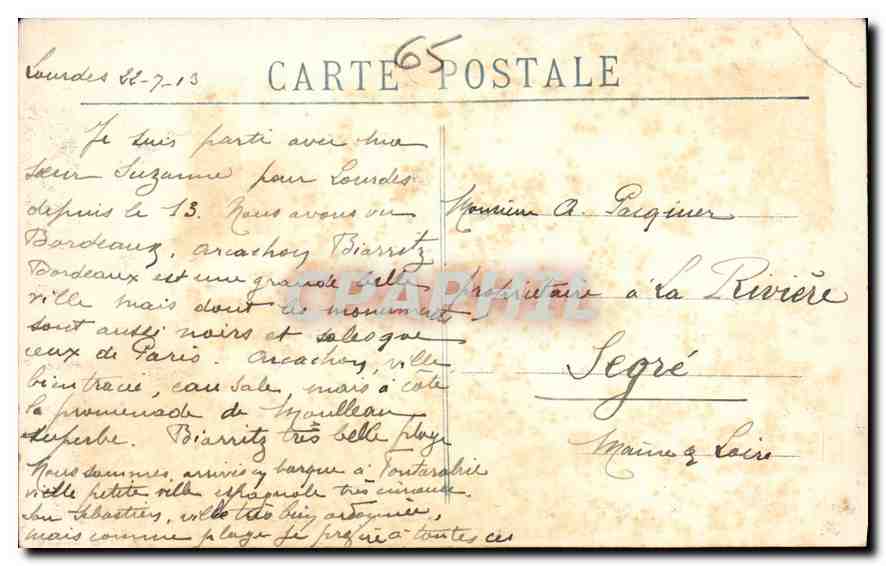 65
Lourdes 22-7-13
CARTE POSTALE
Je suis parti avec ma
sœur Suzanne pour Lourdes
depuis le 13. Nous avons vu
Bordeaux, Arcachon Biarritz
Bordeaux est une grande belle
ville mais dont les monuments
sont aussi noirs et sales que
ceux de Paris. Arcachon, ville
bien tracée, eau sale, mais à côté
la promenade de Moulleau
superbe. Biarritz très belle plage
Nous sommes, arrivés en barque à Fontarabie
vieille petite ville espagnole très curieuse.
San Sébastien, ville très bien ordonnée,
mais comme plage je préfère à toutes ces
Monsieur A. Pasquier
propriétaire à La Rivière
Segré
Maine & Loire
CPAPHIL